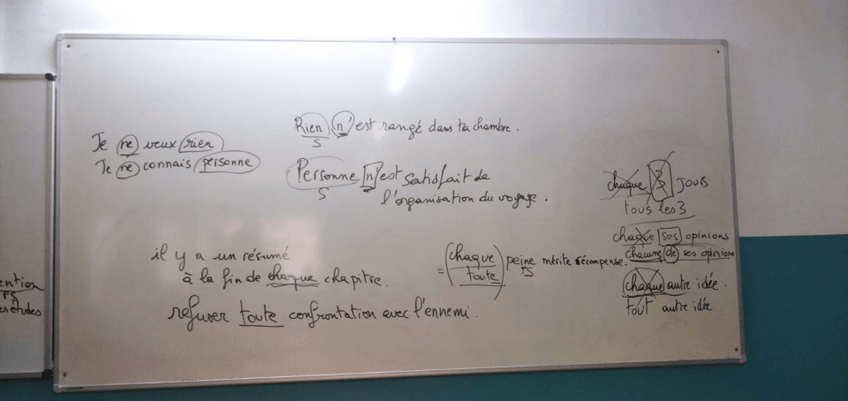 Je ne veux rien
Je ne connais personne
Rien n'est rangé dans ta chambre.
S
Personne n'est satisfait de
S
l'organisation du voyage.
chaque 3 jours
tous les 3
chaque ses opinions
chacune de ses opinions
chaque autre idée.
tout autre idée
il y a un résumé
à la fin de chaque chapitre.
= (chaque
toute) peine mérite récompense.
S
refuser toute confrontation avec l'ennemi.
ention
es études